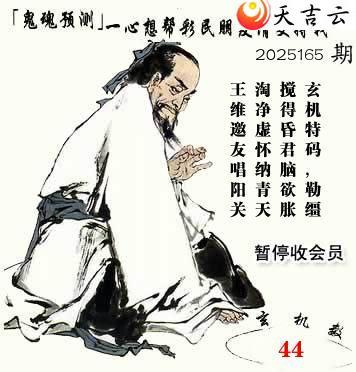 天吉云
「鬼魂预测」一心想帮彩民朋友
2025165 期
玄机特码，勒缰
搅得昏君脑欲胀
淘净虚怀纳青天
王维邀友唱阳关
暂停收会员
玄机
44